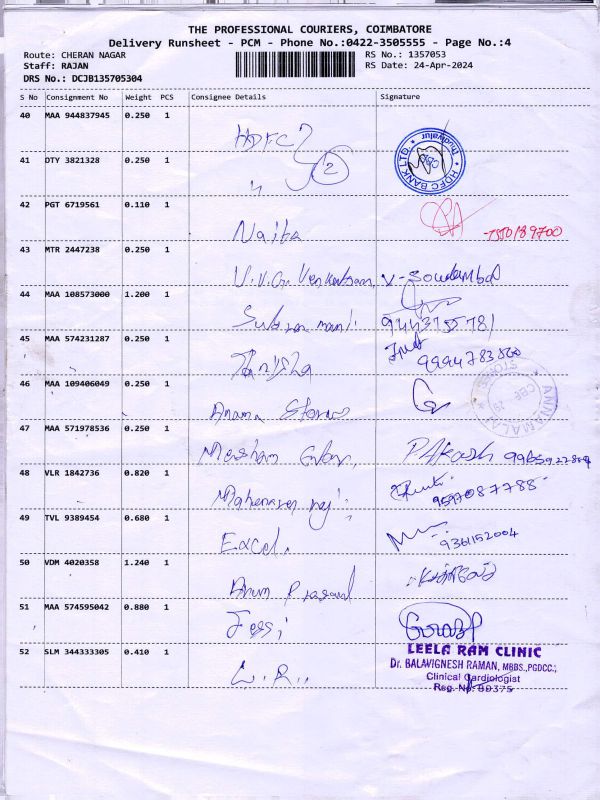 THE PROFESSIONAL COURIERS, COIMBATORE
Delivery Runsheet - PCM - Phone No.:0422-3505555 - Page No.:4
Route: CHERAN NAGAR RS No.: 1357053
Staff: RAJAN RS Date: 24-Apr-2024
DRS No.: DCJB135705304
S No Consignment No Weight PCS Consignee Details Signature
40 MAA 944837945 0.250 1 HDFC
2
HDFC BANK LTD.
41 DTY 3821328 0.250 1 "
42 PGT 6719561 0.110 1 Naita
43 MTR 2447238 0.250 1 V.V.G. Venkatesan V-Soundambal
44 MAA 108573000 1.200 1 Subramani. 9443755781
45 MAA 574231287 0.250 1 Tanisha 9994783800
46 MAA 109406049 0.250 1 Anama Stores
ANNAMALAI STORES CBE
47 MAA 571978536 0.250 1 PAkash
48 VLR 1842736 0.820 1 9597087788
49 TVL 9389454 0.680 1 Excel. 9361152004
50 VDM 4020358 1.240 1 Arun Prasad
51 MAA 574595042 0.880 1 Jessi
52 SLM 344333305 0.410 1 L.R..
LEELA RAM CLINIC
Dr. BALAVIGNESH RAMAN, MBBS.,PGDCC.;
Clinical Cardiologist
Reg. No. 89375